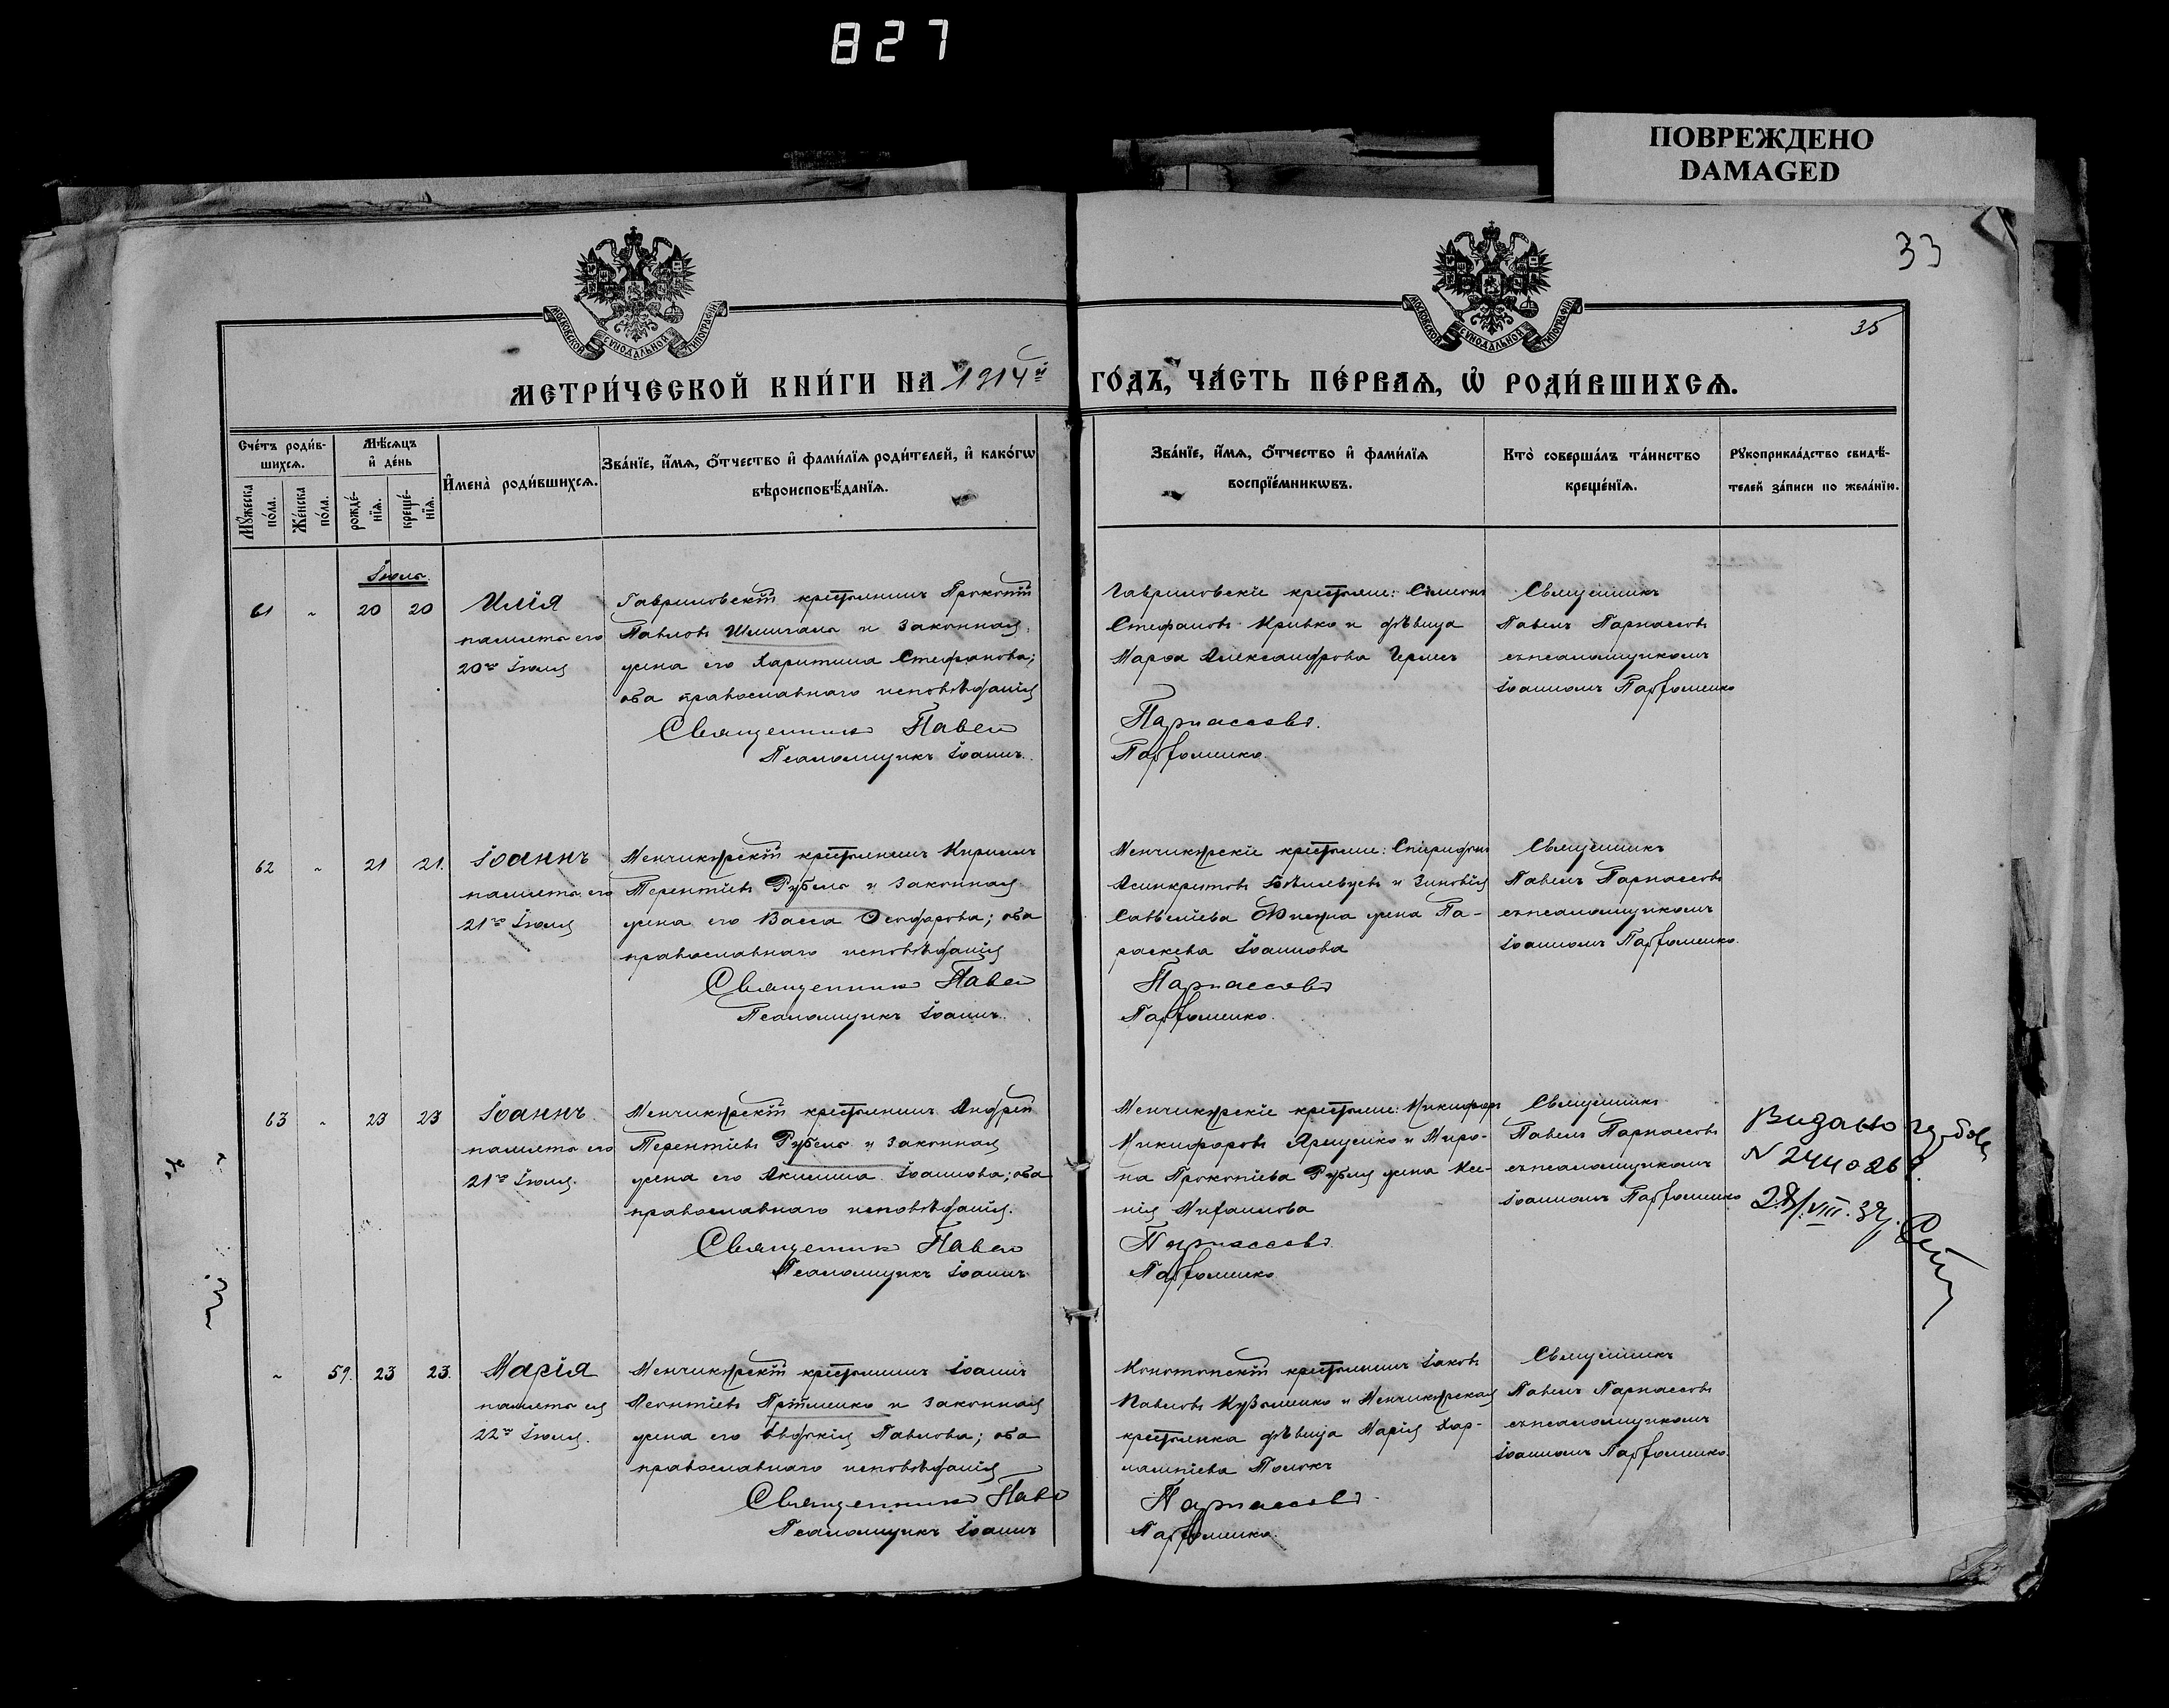 827
ПОВРЕЖДЕНО
DAMAGED
33
35
МОСКОВСКОЙ СѴНОДАЛЬНОЙ ТИПОГРАФІИ
МОСКОВСКОЙ СѴНОДАЛЬНОЙ ТИПОГРАФІИ
МЕТРИ́ЧЕСКОЙ КНИ́ГИ НА 1914й ГО́ДЪ, ЧА́СТЬ ПЕ́РВАѦ, Ѡ҆ РОДИ́ВШИХСѦ.
Сче́тъ роди́в-
шихсѧ.
Мꙋ́жеска по́ла.
Же́нска по́ла.
Мѣ́сѧцъ
и҆ де́нь
рожде́-
нїѧ.
креще́-
нїѧ.
И҆мена̀ роди́вшихсѧ.
Зва́нїе, и҆́мѧ, ѻ҆́тчество и҆ фами́лїѧ роди́телей, и҆ како́гѡ
вѣроисповѣ́данїѧ.
Зва́нїе, и҆́мѧ, ѻ҆́тчество и҆ фами́лїѧ
воспрїе́мникѡвъ.
Кто̀ соверша́лъ та́инство
креще́нїѧ.
Рꙋкоприкла́дство свидѣ́-
телей за́писи по жела́нїю.
Іюль.
61 „ 20 20 Илія
память его
20го Іюля
Гавриловскій крестьянинъ Прокопій
Павловъ Шлигало и законная
жена его Харитина Стефанова;
оба православнаго исповѣданія
Священникъ Павел
Псаломщикъ Іоаннъ
Гавриловскіе крестьяне: Симеонъ
Стефановъ Кривко и дѣвица
Марѳа Александрова
Парнассовъ.
Парфоменко.
Священникъ
Павелъ Парнассовъ
съ псаломщикомъ
Іоанномъ Парфоменко
62 „ 21 21. Іоаннъ
память его
21го Іюля
Менчикурскій крестьянинъ Кириллъ
Терентіевъ Рубель и законная
жена его Васса Ѳеодорова; оба
православнаго исповѣданія
Священникъ Павел
Псаломщикъ Іоаннъ.
Менчикурскіе крестьяне: Спиридонъ
Асинкритовъ и Зиновія
Савеліева жена Па-
раскева Іоаннова
Парнассовъ
Парфоменко.
Священникъ
Павелъ Парнассовъ
съ псаломщикомъ
Іоанномъ Парфоменко.
63 „ 23 23 Іоаннъ.
память его
21го Іюля.
Менчикурскій крестьянинъ Андрей
Терентіевъ Рубель и законная
жена его Акилина Іоаннова; оба
православнаго исповѣданія.
Священникъ Павел
Псаломщикъ Іоаннъ
Менчикурскіе крестьяне: Никифоръ
Никифоровъ Ярещенко и Миро-
на Прокопіева Рубля жена Ксе-
нія Михаилова
Парнассовъ.
Парфоменко
Священникъ
Павелъ Парнассовъ
съ псаломщикомъ
Іоанномъ Парфоменко
Видано
N 244026
VIII
„ 59. 23 23. Марія
память ея
22го Іюля.
Менчикурскій крестьянинъ Іоаннъ
Леонтіевъ и законная
жена его Евдокія Павлова; оба
православнаго исповѣданія
Священникъ Паве
Псаломщикъ Іоаннъ
Конотопскій крестьянинъ Іаковъ
Павловъ Кузьменко и Менчикурская
крестьянка дѣвица Марія Хар-
лампіева
Парнассовъ.
Парфоменко.
Священникъ
Павелъ Парнассовъ
съ псаломщикомъ
Іоанномъ Парфоменко.